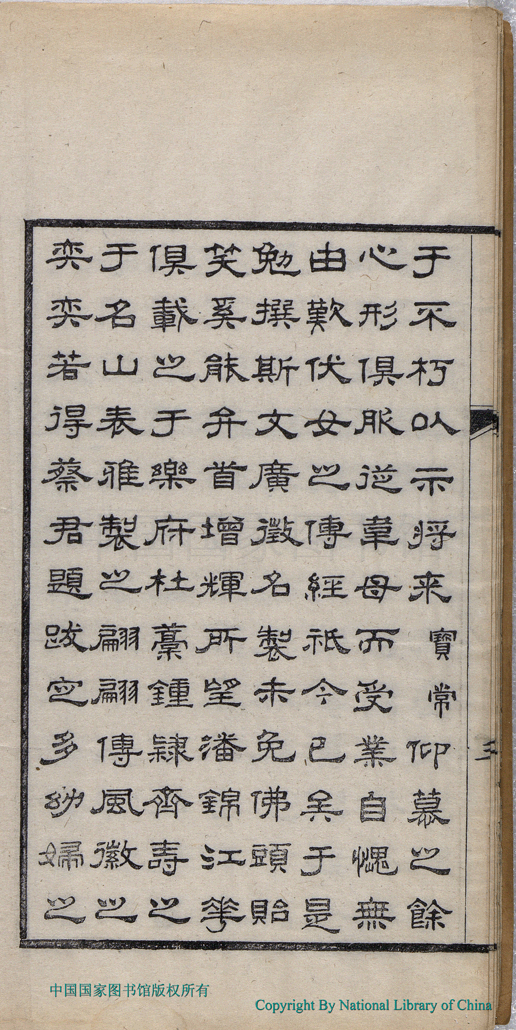 于不朽以示將来寶常仰慕之餘
心形俱服從韋母而受業自愧無
由歎伏女之傳經祇今已矣于是
勉撰斯文廣徵名製未免佛頭貽
笑奚能弁首增輝所望潘錦江華
俱載之于樂府杜藳鍾隸齊壽之
于名山表雅製之翩翩傳風徽之
奕奕若得蔡君題跋定多幼婦之
中国国家图书馆版权所有
Copyright By National Library of China